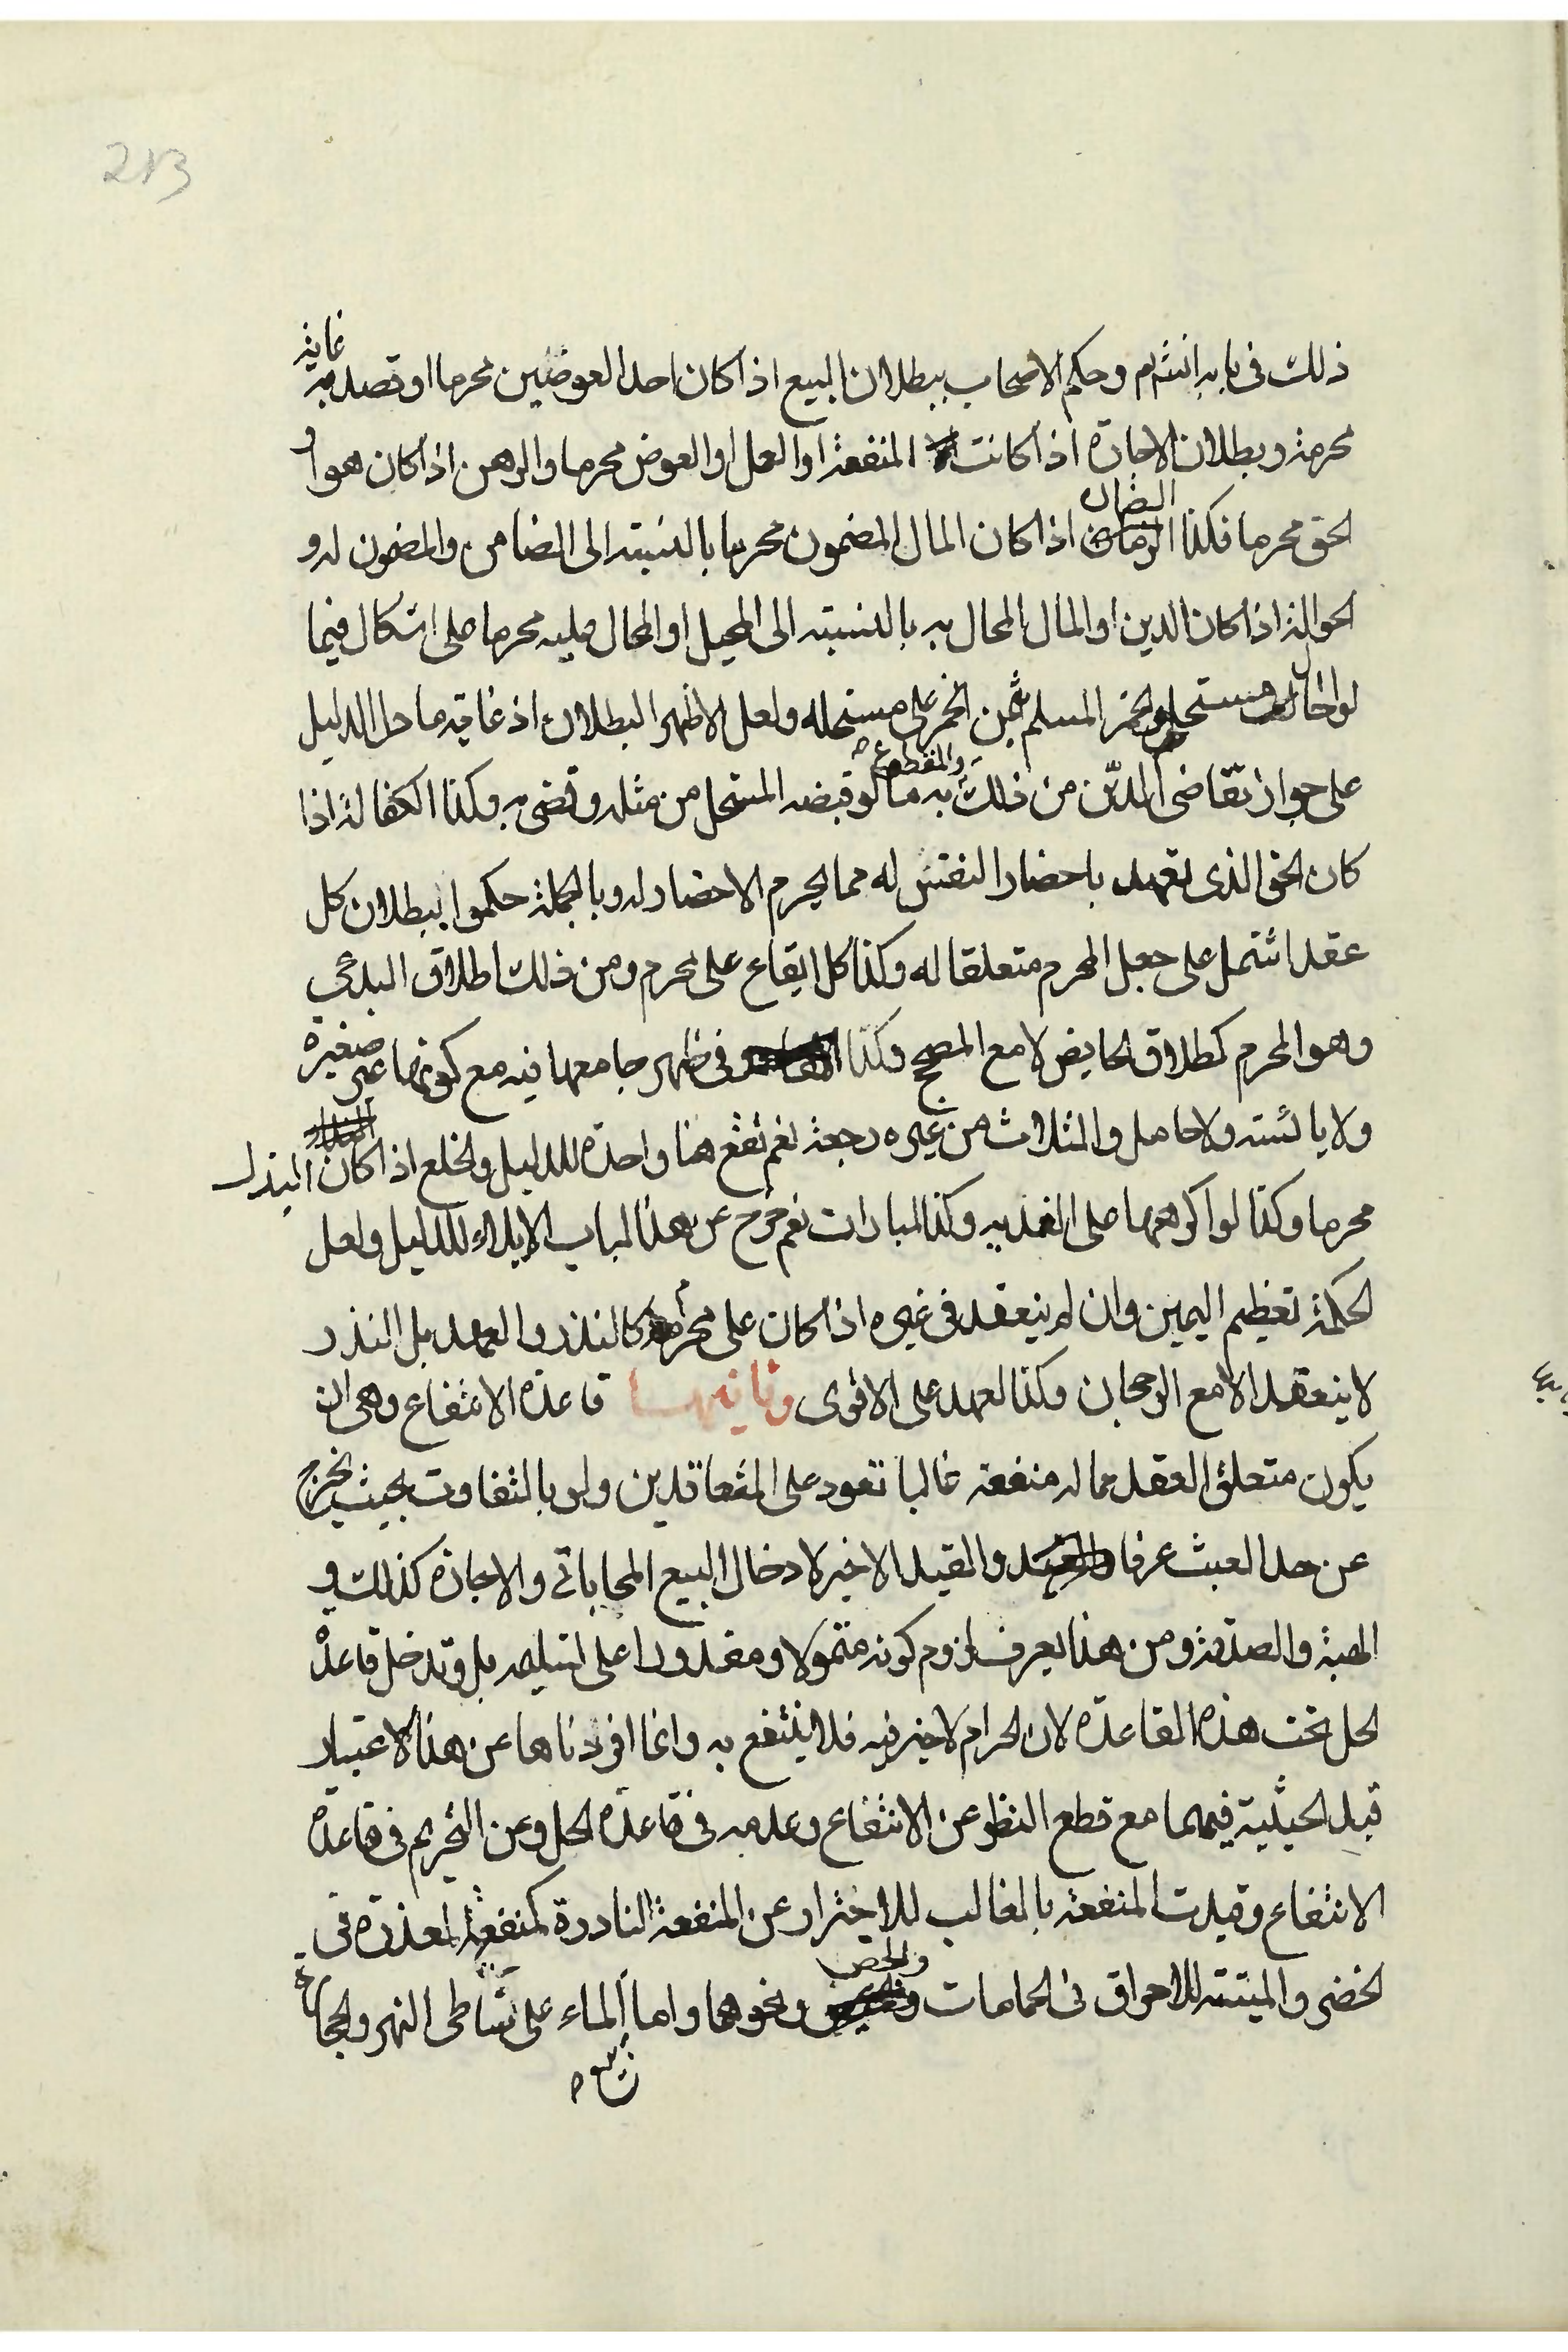 213
ذلك فى بابه انشم وحكم الاصحاب ببطلان البيع اذا كان احد العوضين محرما او قصد به غاية
محرمة وبطلان الاجارة اذا كانت المنفعة او العمل او العوض محرما والرهن اذا كان هو او
الحق محرما فكذا الضمان اذا كان المال المضمون محرما بالنسبته الى الضامن والمضمون له و
الحوالة اذا كان الدين او المال المحال به بالنسبته الى المحيل او المحال عليه محرما على اشكال فيما
لو احال مستحل الخمر المسلم بثمن الخمر على مستحله ولعل الاظهر البطلان اذ غايته ما دل الدليل
على جواز تقاضى الدين من ذلك والمقطوع به ما لو قبضه المستحل من مثله وقضى به وكذا الكفالة اذا
كان الحق الذى تعهد باحضار النفس له مما يحرم الاحضار له وبالجملة حكموا ببطلان كل
عقد اشتمل على جعل المحرم متعلقا له وكذا كل ايقاع على محرم ومن ذلك طلاق البدعى
وهو المحرم كطلاق الحايض لا مع المصحح وكذا فى طهر جامعها فيه مع كونها غير صغيرة
ولا يائسته ولا حامل والثلاث من غيره رجعة نعم تقع هنا واحدة للدليل والخلع اذا كان البذل
محرما وكذا لو اكرهها على الفديه وكذا المبارات نعم خرج عن هذا الباب الايلاء للدليل ولعل
الحكمة تعظيم اليمين وان لم ينعقد فى غيره اذا كان على محرم كالنذر والعهد بل النذر
لا ينعقد الا مع الرجحان وكذا العهد على الاقوى وثانيها قاعدة الانتفاع وهى ان
يكون متعلق العقد مما له منفعة غالبا تعود على المتعاقدين ولو بالتفاوت بحيث يخرج
عن حد العبث عرفا والقيد الاخير لادخال البيع المحاباتى والاجارة كذلك و
الهبة والصدقة ومن هذا يعرف لزوم كونه متمولا ومقدورا على تسليمه بل وتدخل قاعدة
الحل تحت هذه القاعدة لان الحرام لا خير فيه فلا ينتفع به وانما افردناها عن هذا لاعتبار
قيد الحيثية فيهما مع قطع النظر عن الانتفاع وعدمه فى قاعدة الحل وعن التحريم فى قاعدة
الانتفاع وقيدت المنفعة بالغالب للاحتراز عن المنفعة النادرة كمنفعة العذرة فى
الخضر والميتته للاحراق فى الحمامات والجص ونحوها واما الماء على شاطى النهر والحجارة